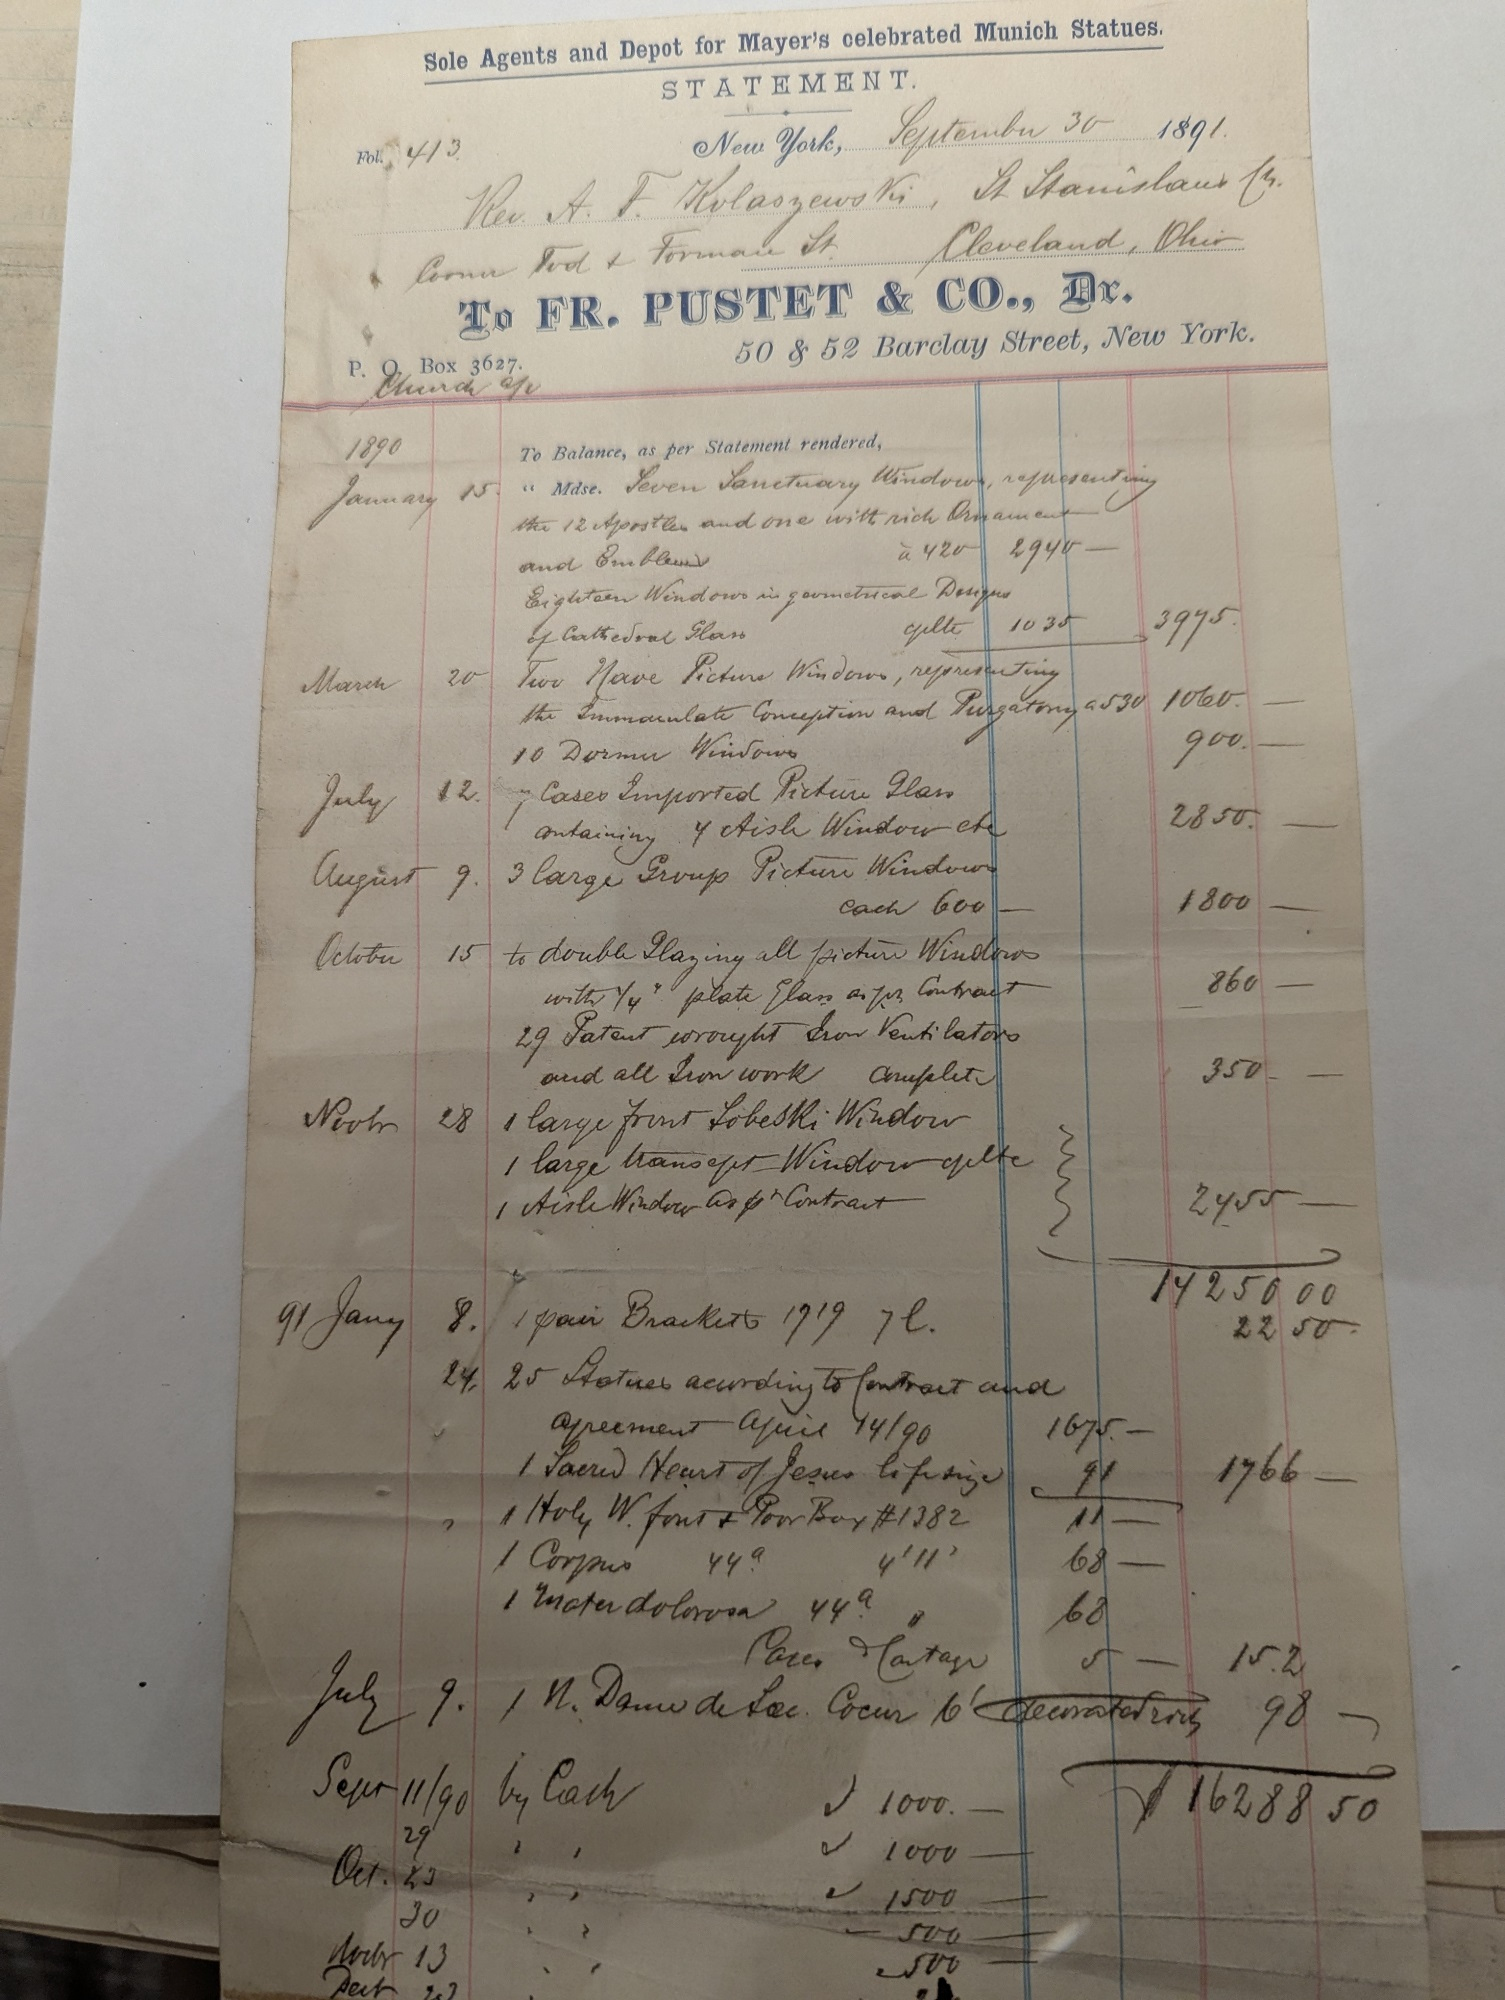 Sole Agents and Depot for Mayer's celebrated Munich Statues.
STATEMENT.
Fol. 413. New York, September 30 1891.
Rev. A. F. Kolaszewski, St Stanislaus Ch.
Corner Tod & Forman St. Cleveland, Ohio
To FR. PUSTET & CO., Dr.
50 & 52 Barclay Street, New York.
P. O. Box 3627.
Church a/c
1890 To Balance, as per Statement rendered,
January 15. " Mdse. Seven Sanctuary Windows, representing
the 12 Apostles and one with rich Ornament
and Emblems à 420 2940 —
Eighteen Windows in geometrical Designs
of Cathedral Glass cplte 1035 3975.
March 20 Two Nave Picture Windows, representing
the Immaculate Conception and Purgatory a 530 1060. —
10 Dormer Windows 900. —
July 12. 7 Cases Imported Picture Glass
containing 4 Aisle Window etc 2850. —
August 9. 3 large Group Picture Windows
each 600 — 1800 —
October 15 to double Glazing all picture Windows
with 1/4" plate Glass as pr Contract 860 —
29 Patent wrought Iron Ventilators
and all Iron work complete 350 —
Novbr 28 1 large front Sobeski Window
1 large transept Window cplte
1 Aisle Window as pr Contract 2455 —
14250 00
91 Jany 8. 1 pair Brackets 1719 7 l. 22 50
24. 25 Statues acording to Contract and
agreement April 14/90 1675. —
1 Sacred Heart of Jesus lifesize 91 1766 —
" 1 Holy W. font & Poor Box #1382 11 —
1 Corpus 44a 4'11" 68 —
1 Mater dolorosa 44a " 68
Cases & Cartage 5 — 15.2
July 9. 1 N. Dame de Sac. Coeur 6' decorated rich 98 —
$ 16288 50
Sept 11/90 by Cash √ 1000. —
29 " " √ 1000 —
Oct. 23 " " √ 1500 —
30 " " 500 —
Novbr 13 " " 500